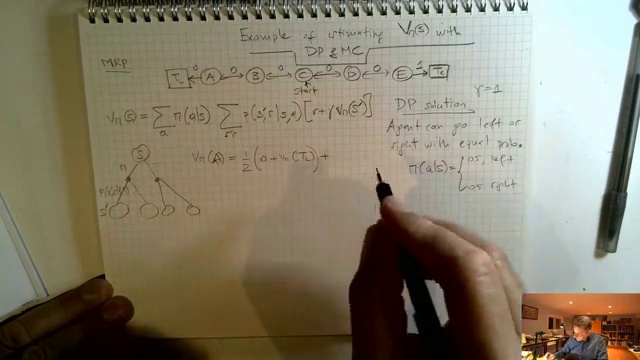 Example of estimating Vπ(s) with
DP & MC
MRP
0 0 0 0 0 1
TL A B C D E TR
start
Vπ(s) = Σa π(a|s) Σs'r p(s',r|s,a) [r+γVπ(s')]
DP solution γ=1
Agent can go left or
right with equal prob.
π(a|s) = { 0.5, left
0.5 right
S
π
Vπ(A) = 1/2 (0 + Vπ(TL)) +
s'